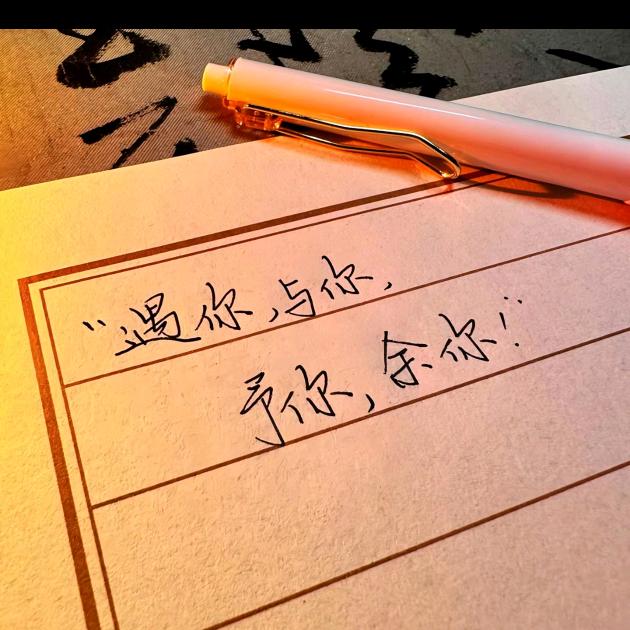 “遇你,与你,
予你,余你!”